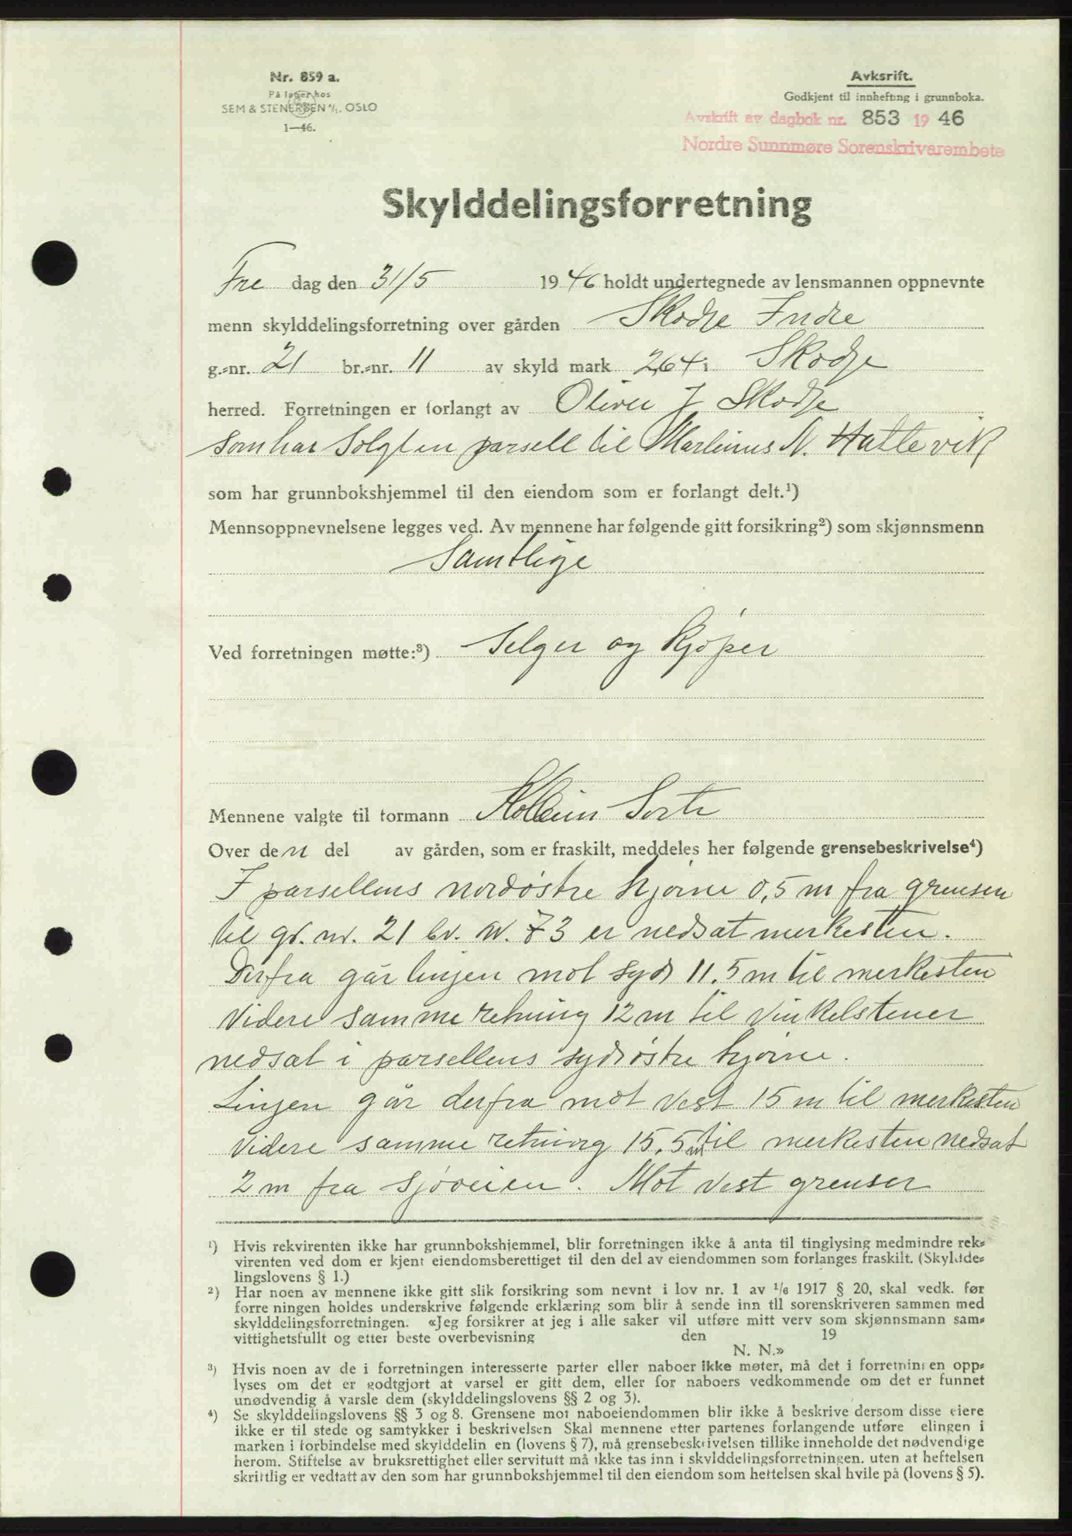 Nr. 859 a.
På lager hos
SEM & STENERSEN A/S. OSLO
1—46.
Avksrift.
Godkjent til innhefting i grunnboka.
Avskrift av dagbok nr. 853 1946
Nordre Sunnmøre Sorenskrivarembete
Skylddelingsforretning
Fre dag den 31/5 1946 holdt undertegnede av lensmannen oppnevnte
menn skylddelingsforretning over gården Skodje Indre
g.-nr. 21 br.-nr. 11 av skyld mark 2,64 i Skodje
herred. Forretningen er forlangt av Oliver J Skodje
som har Solgt en parsell til Martinus N. Hattevik
som har grunnbokshjemmel til den eiendom som er forlangt delt.¹)
Mennsoppnevnelsene legges ved. Av mennene har følgende gitt forsikring²) som skjønnsmenn
Samtlige
Ved forretningen møtte:³) Selger og kjøper
Mennene valgte til formann Kolbein Sorte
Over den del av gården, som er fraskilt, meddeles her følgende grensebeskrivelse⁴)
I parsellens nordøstre hjørne 0,5 m fra grensen
til gr. nr. 21 br. nr. 73 er nedsat merkesten.
Derfra går linjen mot syd 11.5 m til merkesten
videre samme retning 12 m til vinkelstener
nedsat i parsellens sydøstre hjørne.
Linjen går derfra mot vest 15 m til merkesten
videre samme retning 15.5 m til merkesten nedsat
2 m fra sjøveien. Mot vest grenser
¹) Hvis rekvirenten ikke har grunnbokshjemmel, blir forretningen ikke å anta til tinglysing medmindre rek-
virenten ved dom er kjent eiendomsberettiget til den del av eiendommen som forlanges fraskilt. (Skyldde-
lingslovens § 1.)
²) Har noen av mennene ikke gitt slik forsikring som nevnt i lov nr. 1 av 1/6 1917 § 20, skal vedk. før
forretningen holdes underskrive følgende erklæring som blir å sende inn til sorenskriveren sammen med
skylddelingsforretningen. «Jeg forsikrer at jeg i alle saker vil utføre mitt verv som skjønnsmann sam-
vittighetsfullt og etter beste overbevisning den 19
N. N.»
³) Hvis noen av de i forretningen interesserte parter eller naboer ikke møter, må det i forretningen opp-
lyses om det er godtgjort at varsel er gitt dem, eller for naboers vedkommende om det er funnet
unødvendig å varsle dem (skylddelingslovens §§ 2 og 3).
⁴) Se skylddelingslovens §§ 3 og 8. Grensene mot naboeiendommen blir ikke å beskrive dersom disse eiere
ikke er til stede og samtykker i beskrivelsen Skal mennene etter partenes forlangende utføre delingen i
marken i forbindelse med skylddelingen (lovens § 7), må grensebeskrivelsen tillike inneholde det nødvendige
herom. Stiftelse av bruksrettighet eller servitutt må ikke tas inn i skylddelingsforretningen, uten at heftelsen
skriftlig er vedtatt av den som har grunnbokshjemmel til den eiendom som heftelsen skal hvile på (lovens § 5).